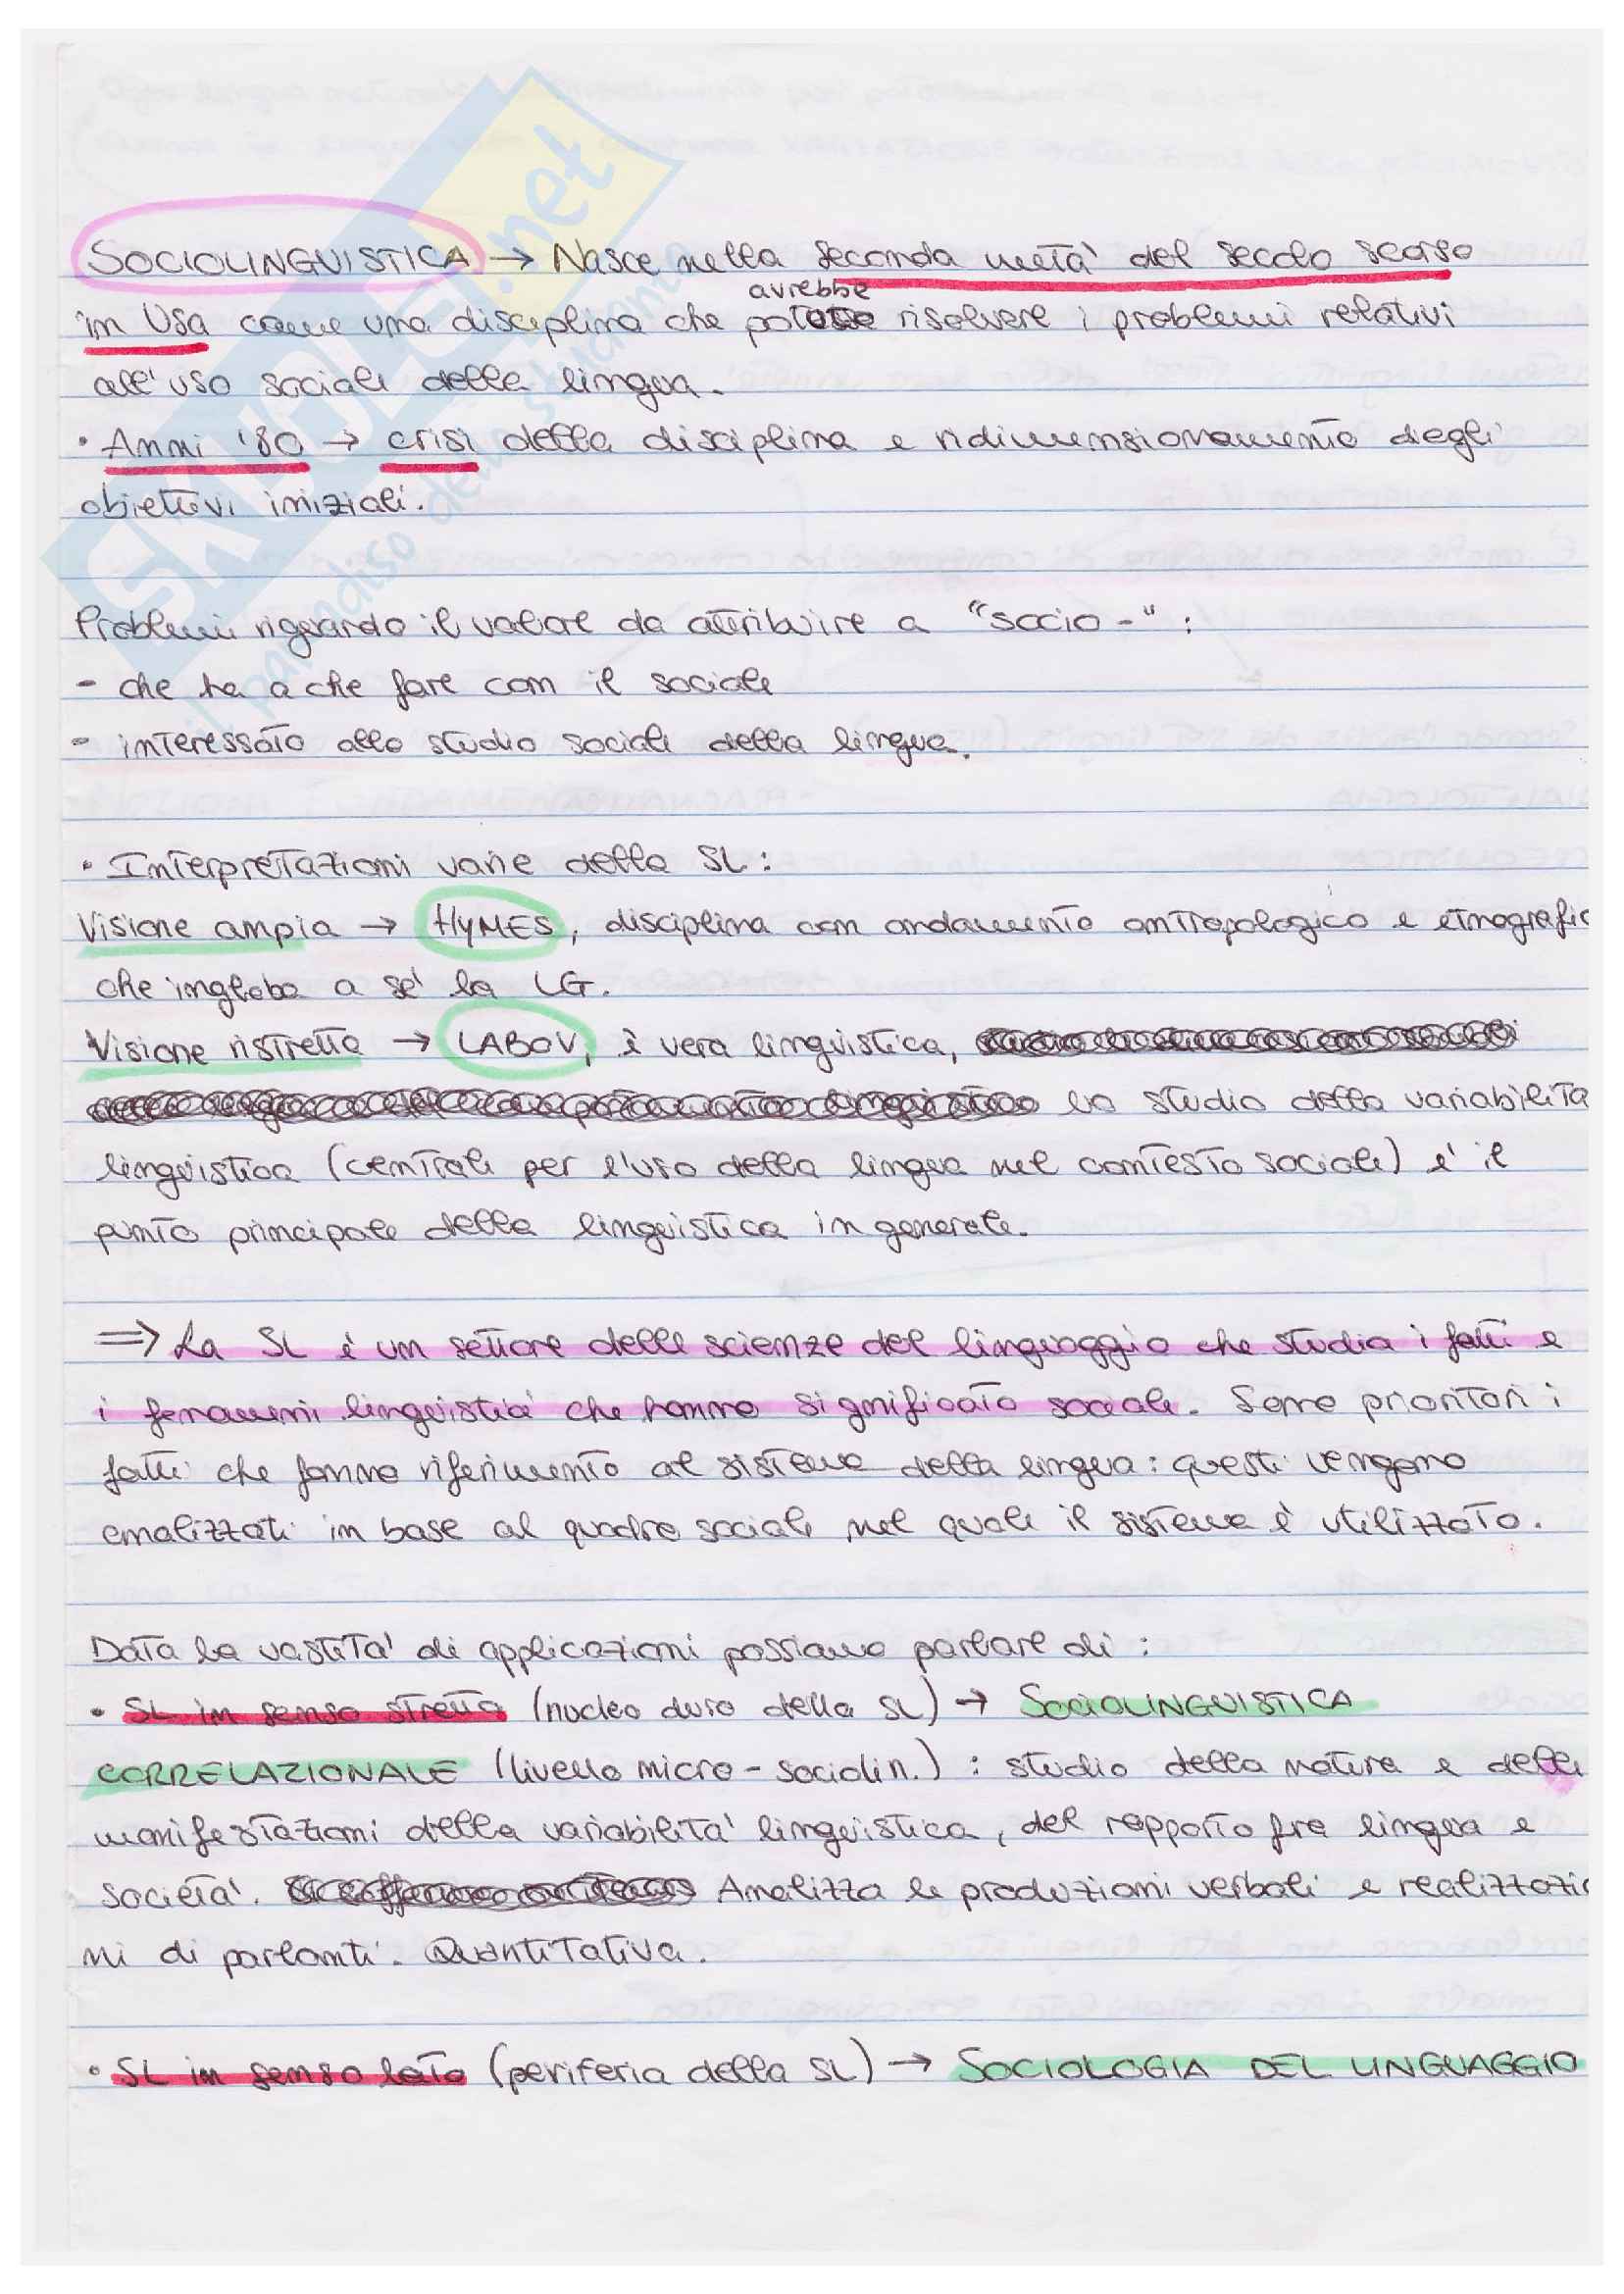 SOCIOLINGUISTICA → Nasce nella seconda metà del secolo scorso
avrebbe
in Usa come una disciplina che potuto risolvere i problemi relativi
all'uso sociale della lingua.
• Anni '80 → crisi della disciplina e ridimensionamento degli
obiettivi iniziali.
Problemi riguardo il valore da attribuire a "socio-":
- che ha a che fare con il sociale
- interessato allo studio sociale della lingua.
• Interpretazioni varie della SL:
Visione ampia → HyMES, disciplina con andamento antropologico e etnografic
che ingloba a sé la LG.
Visione ristretta → LABOV, è vera linguistica,
lo studio della variabilità
linguistica (centrale per l'uso della lingua nel contesto sociale) e' il
punto principale della linguistica in generale.
⇒ La SL è un settore delle scienze del linguaggio che studia i fatti e
i fenomeni linguistici che hanno significato sociale. Sono prioritari i
fatti che fanno riferimento al sistema della lingua: questi vengono
analizzati in base al quadro sociale nel quale il sistema è utilizzato.
Data la vastità di applicazioni possiamo parlare di:
• SL in senso stretto (nucleo duro della SL) → SOCIOLINGUISTICA
CORRELAZIONALE (livello micro-sociolin.): studio della natura e delle
manifestazioni della variabilità linguistica, del rapporto fra lingua e
società. Analizza le produzioni verbali e realizzazio
ni di parlanti. Quantitativa.
• SL in senso lato (periferia della SL) → SOCIOLOGIA DEL LINGUAGGIO
SKUOLA.net
il paradiso dello studente